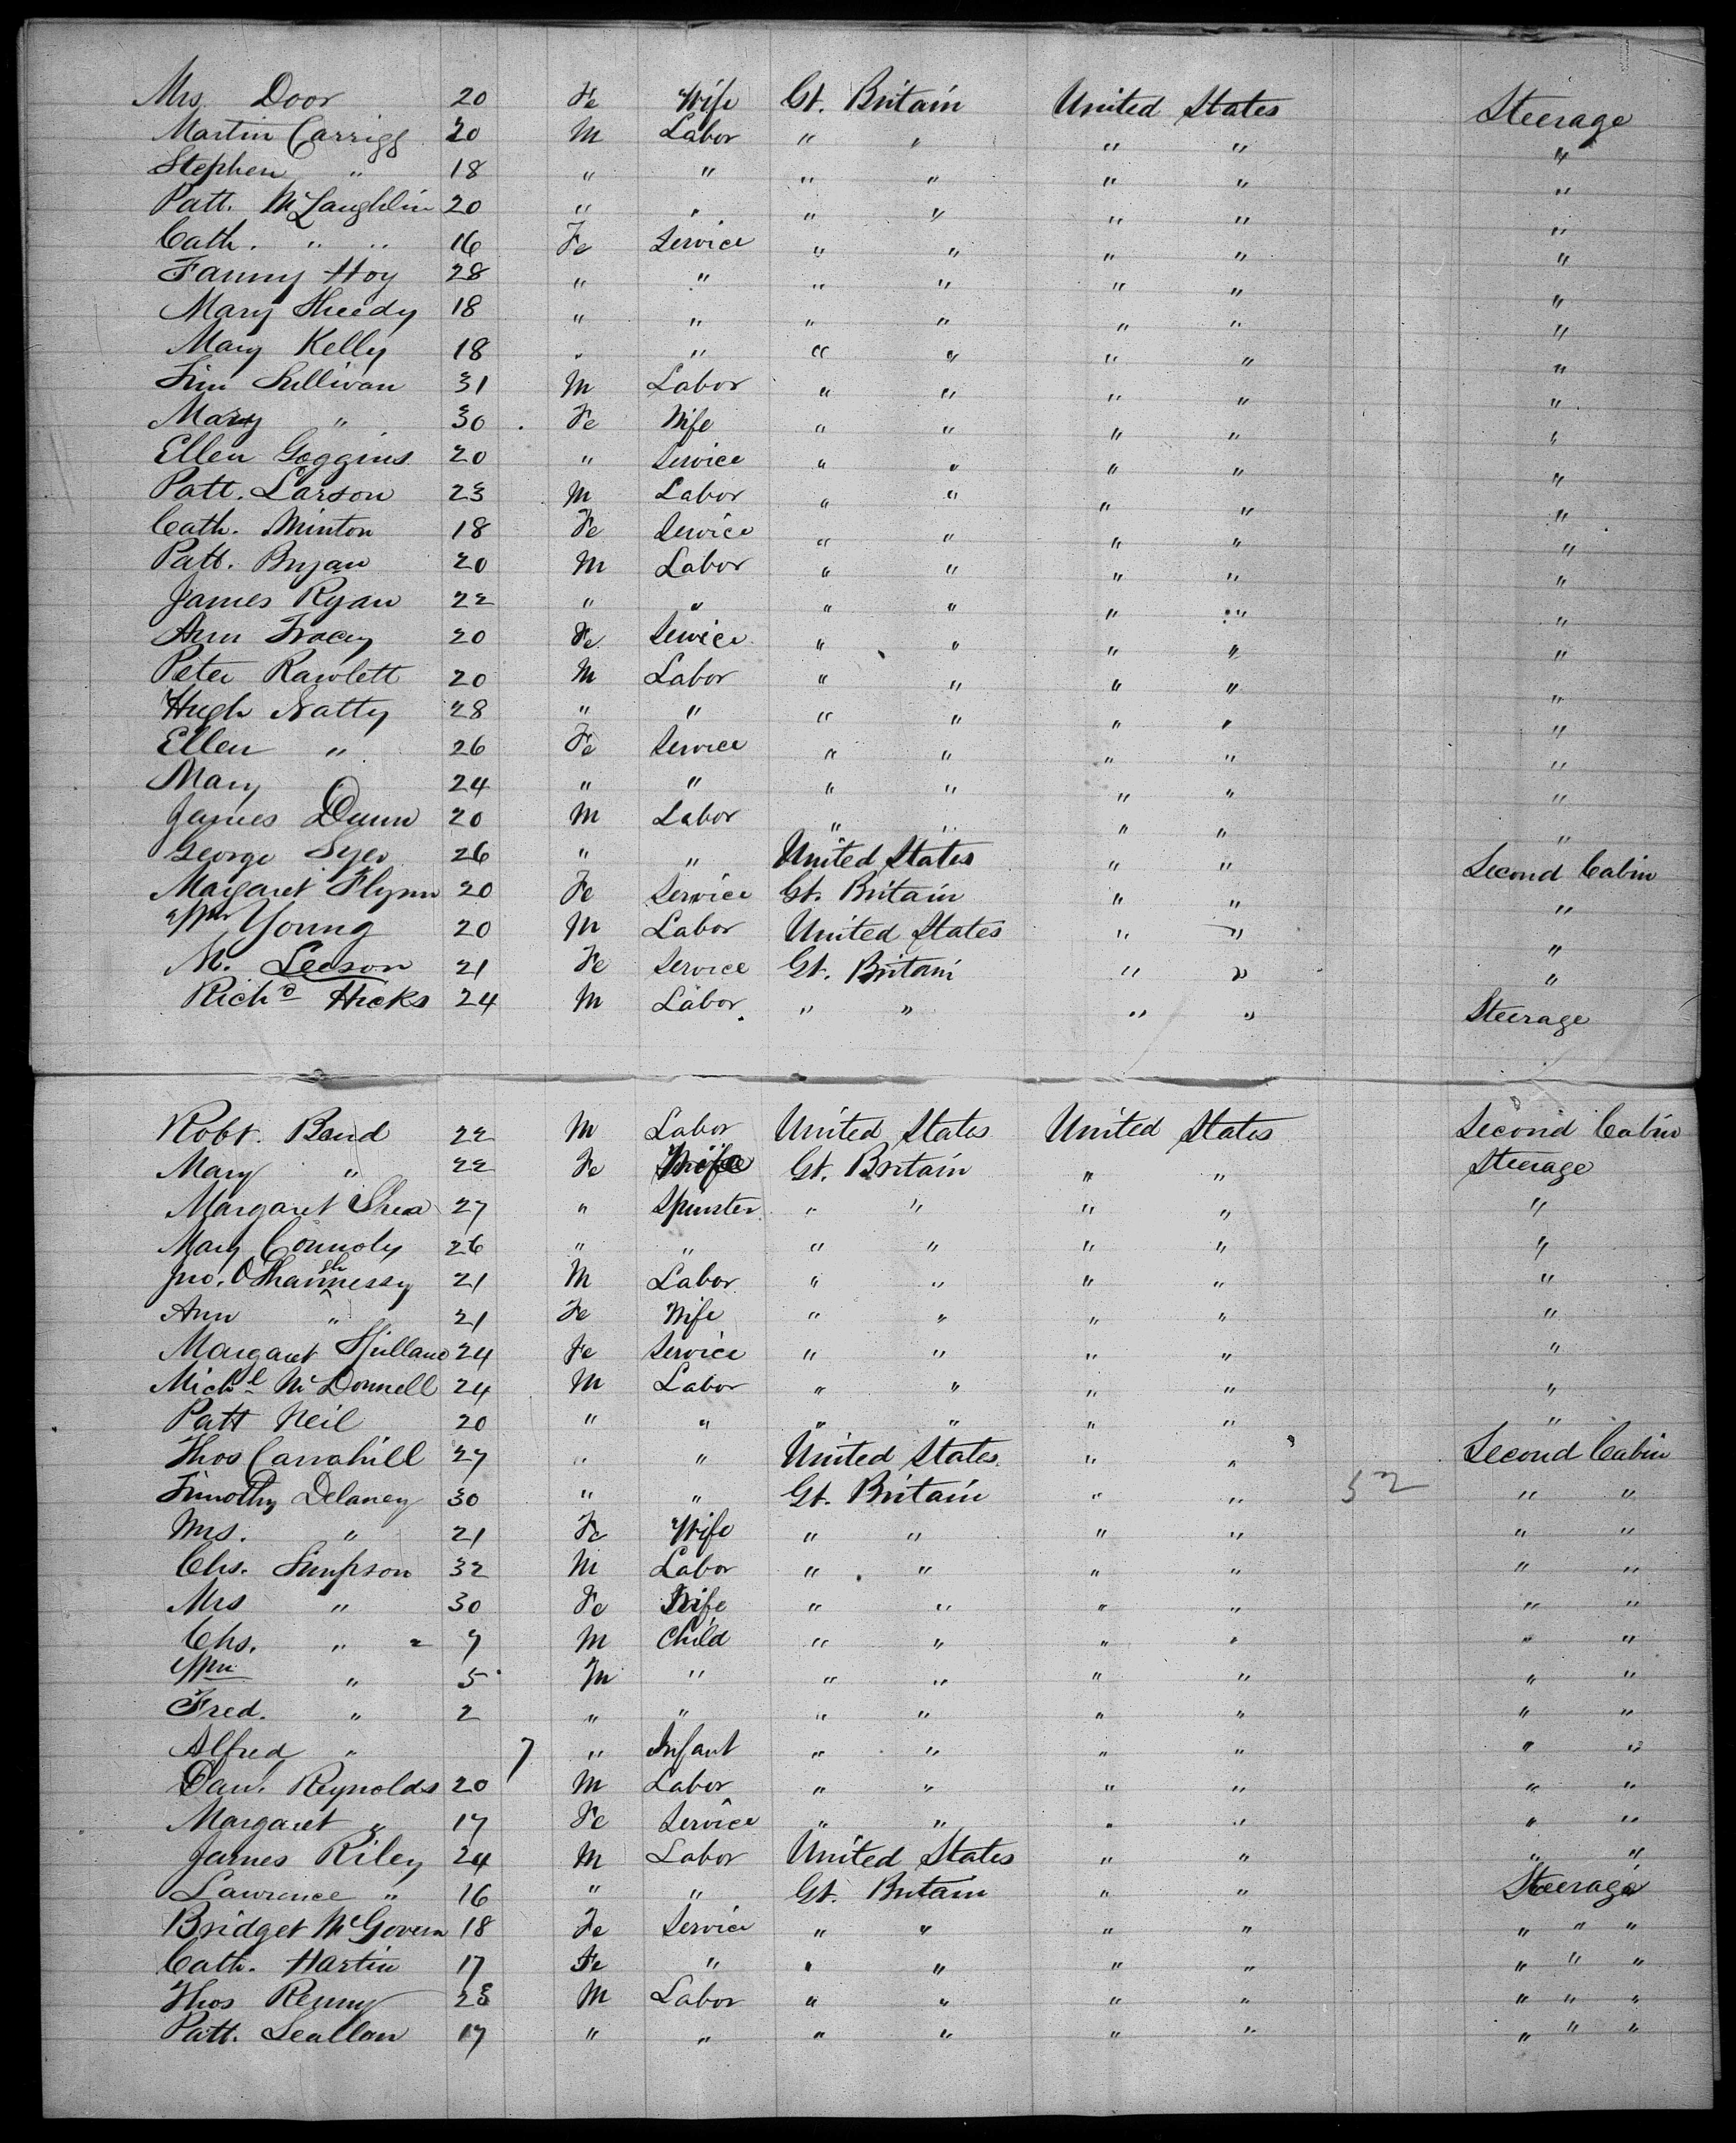 Mrs. Door 20 Fe Wife Gt. Britain United States Steerage
Martin Carrigg 20 M Labor " " " " "
Stephen " 18 " " " " " " "
Patt. McLaughlin 20 " " " " " " "
Cath. " " 16 Fe Service " " " " "
Fanny Hoy 28 " " " " " " "
Mary Sheedy 18 " " " " " " "
Mary Kelly 18 " " " " " " "
Tim Sullivan 31 M Labor " " " " "
Mary " 30 Fe Wife " " " " "
Ellen Goggins 20 " Service " " " " "
Patt. Larson 23 M Labor " " " " "
Cath. Minton 18 Fe Service " " " " "
Patt. Bryan 20 M Labor " " " " "
James Ryan 22 " " " " " " "
Ann Tracey 20 Fe Service " " " " "
Peter Rawlett 20 M Labor " " " " "
Hugh Natty 28 " " " " " " "
Ellen " 26 Fe Service " " " " "
Mary 24 " " " " " " "
James Dunn 20 M Labor " " " " "
George 26 " " United States " " Second Cabin
Margaret Flynn 20 Fe Service Gt. Britain " " "
Wm Young 20 M Labor United States " " "
M. Leeson 21 Fe Service Gt. Britain " " "
Richd Hicks 24 M Labor " " " " Steerage
Robt. Band 22 M Labor United States United States Second Cabin
Mary " 22 Fe Wife Gt. Britain " " Steerage
Margaret Shea 27 " Spinster " " " " "
Mary Connoly 26 " " " " " " "
Jno. O'Shaughnessy 21 M Labor " " " " "
Ann " 21 Fe Wife " " " " "
Margaret 24 Fe Service " " " " "
Michl McDonnell 24 M Labor " " " " "
Patt Neil 20 " " " " " " "
Thos Carrahill 27 " " United States " " Second Cabin
Timothy Delaney 30 " " Gt. Britain " " 52 " "
Mrs. " 21 Fe Wife " " " " " "
Chs. Simpson 32 M Labor " " " " " "
Mrs " 30 Fe Wife " " " " " "
Chs. " " 7 M Child " " " " " "
Wm " 5 M " " " " " " "
Fred. " 2 " " " " " " " "
Alfred " 7 " Infant " " " " " "
Danl. Reynolds 20 M Labor " " " " " "
Margaret " 17 Fe Service " " " " " "
James Riley 24 M Labor United States " " " "
Lawrence " 16 " " Gt. Britain " " Steerage
Bridget McGovern 18 Fe Service " " " " " " "
Cath. Hartin 17 Fe " " " " " " " "
Thos Renny 23 M Labor " " " " " " "
Patt. Seallan 17 " " " " " " " " "